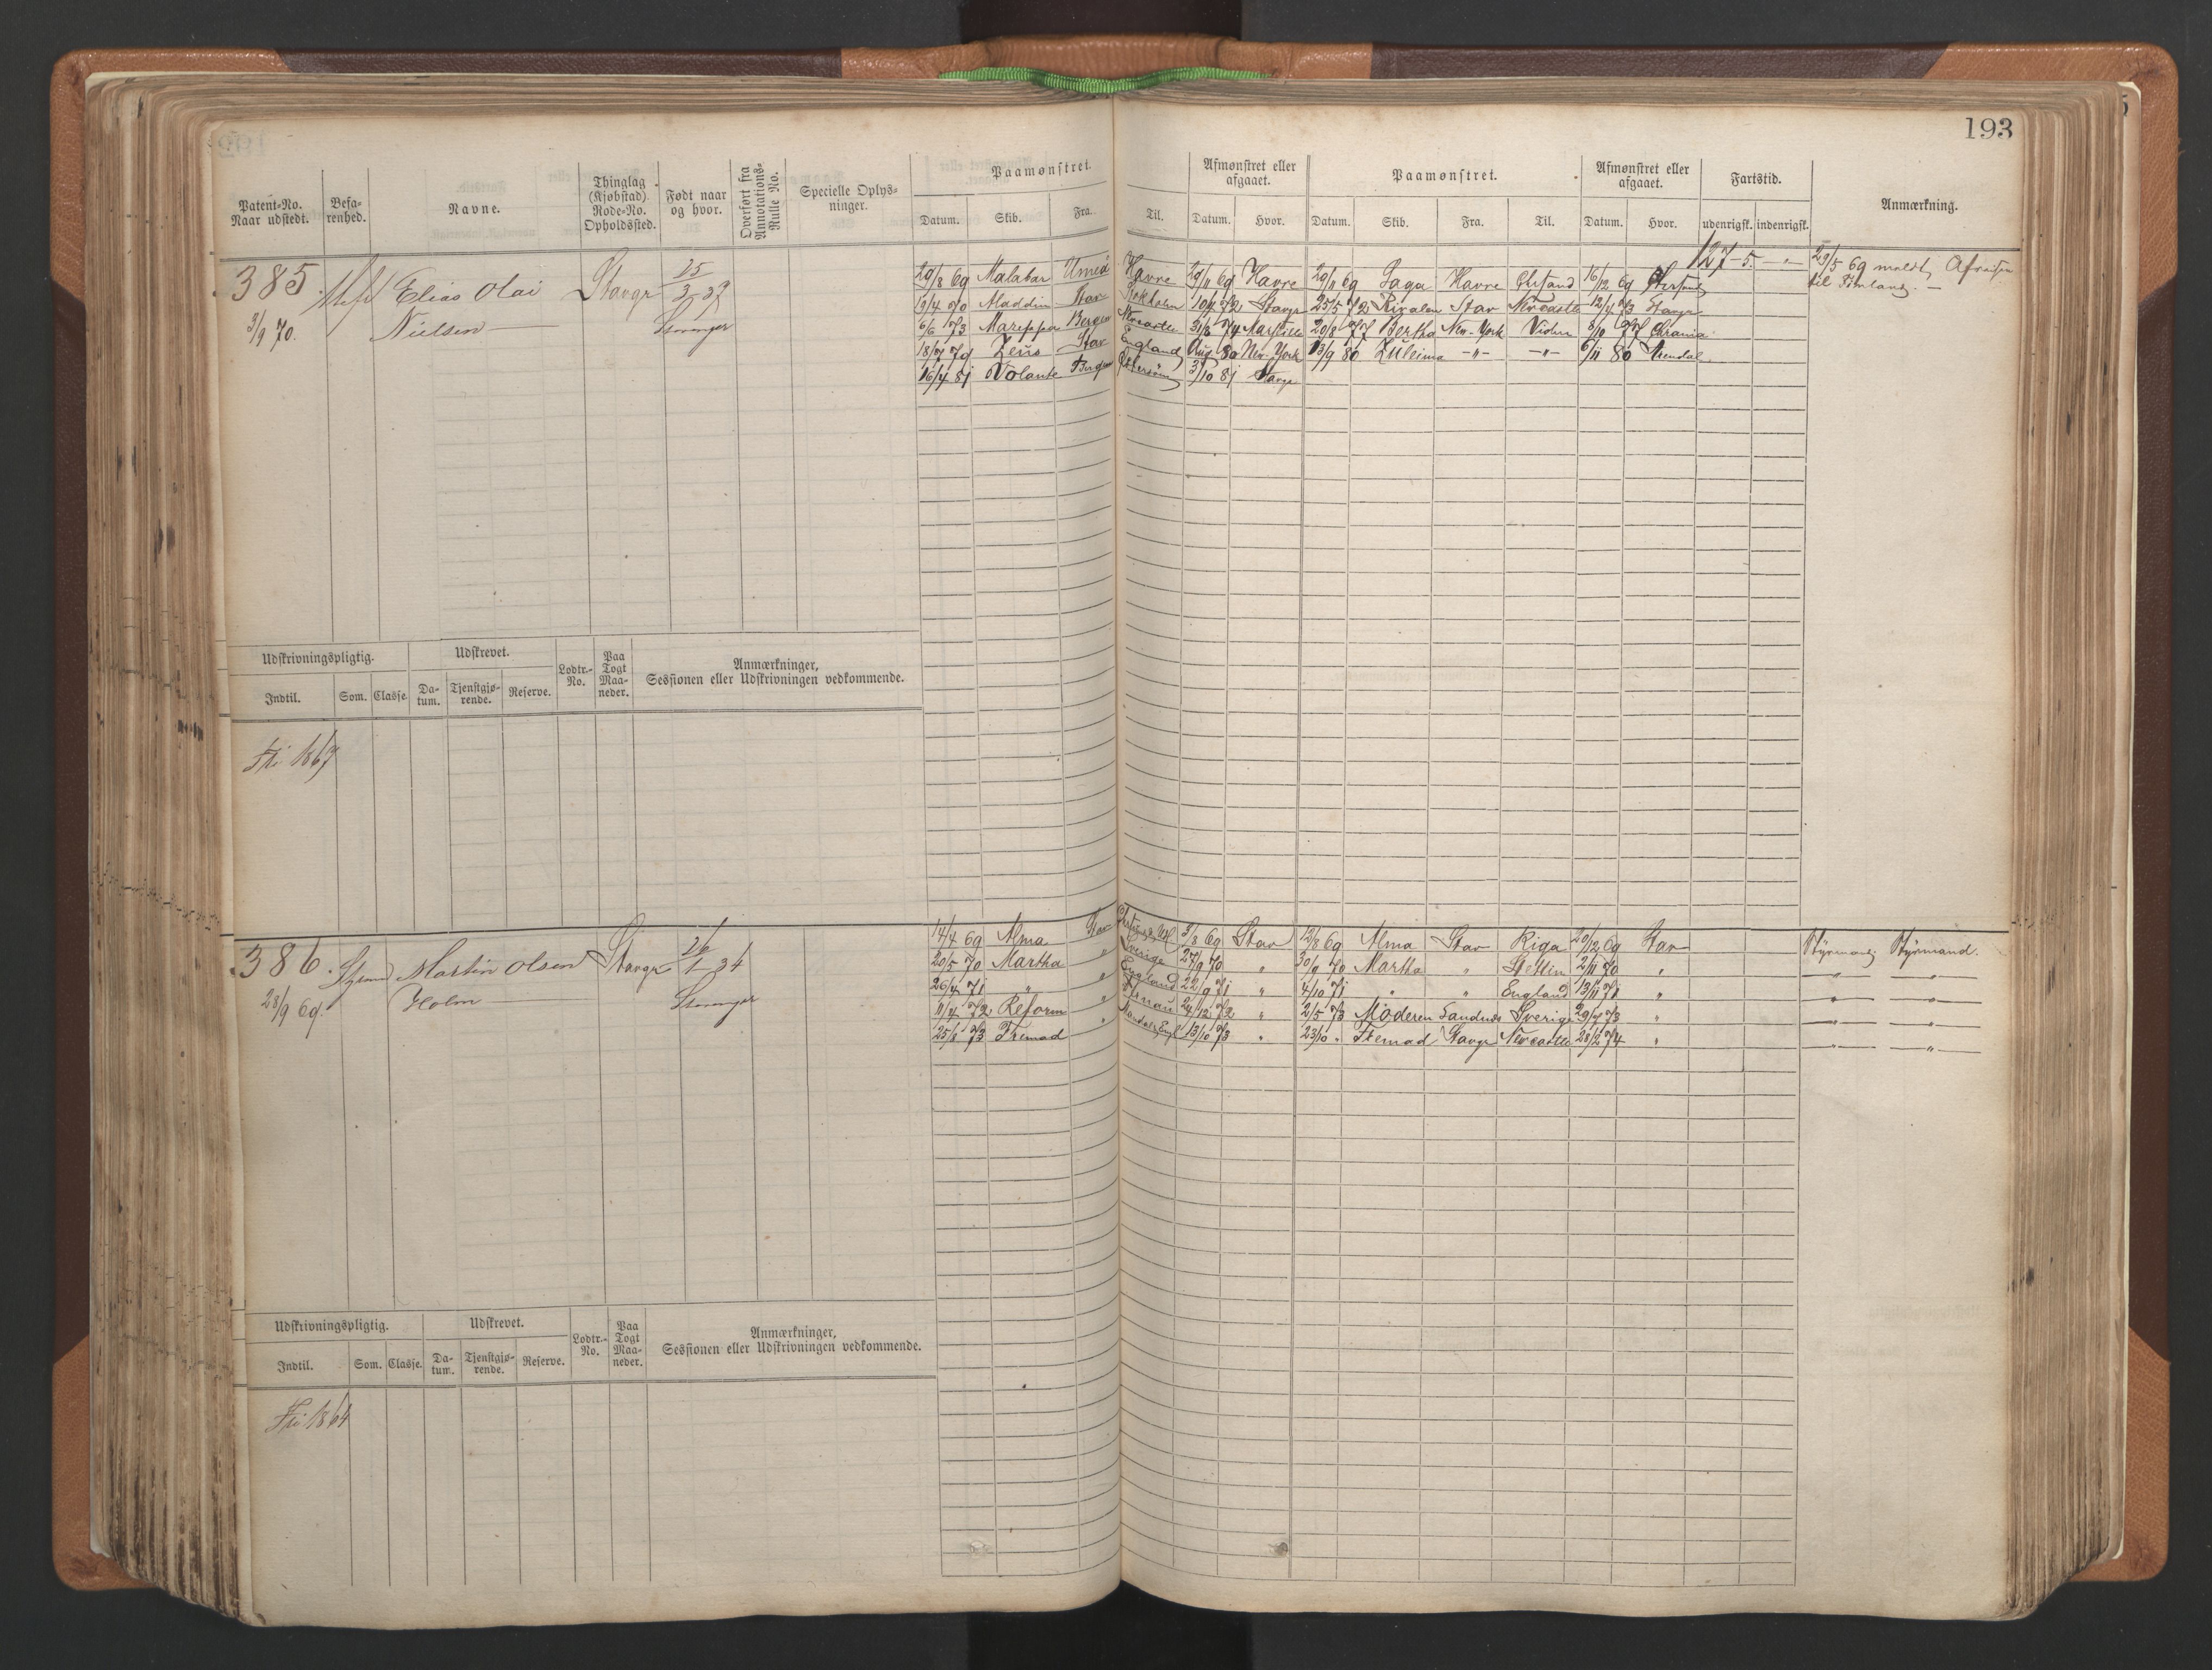 193
Patent-No. Naar udstedt. Befa- renhed. Navne. Thinglag (Kjøbstad) Rode-No. Opholdssted. Født naar og hvor. Overført fra Annotations- Rulle No. Specielle Oplys- ninger. Paamønstret. Afmønstret eller afgaaet. Paamønstret. Afmønstret eller afgaaet. Fartstid. Anmærkning.
Datum. Skib. Fra. Til. Datum. Hvor. Datum. Skib. Fra. Til. Datum. Hvor. udenrigsk. indenrigsk.
385. Elias Olai Stavgr 25/3 37
3/9 70. Nielsen Stavanger
29/8 69 Malabar Umeå Havre 29/11 69 Havre 29/11 69 Saga Havre Chrsand 16/12 69 127-5. -"- 29/5 69 meldt Afreise
til Finland. —
13/4 70 Aladdin Stav Stokholm 10/4 72 Stavgr 25/5 72 Rivalen Stav Newcastle 12/4 73 Stavgr
6/6 73 Bergen Newcastle 31/8 74 Marseille 20/8 77 Bertha New-York 8/10 77 Chrania
18/7 79 Zeus Stav England Aug. 80 New-York 13/9 80 Zuleima -"- -"- 6/11 80 Arendal
16/4 81 Volante Bergen 3/10 81 Stavgr
Udskrivningspligtig. Udskrevet. Lodtr.- No. Paa Togt Maa- neder. Anmærkninger, Sessionen eller Udskrivningen vedkommende.
Indtil. Som. Classe. Da- tum. Tjenstgjø- rende. Reserve.
Fri 1867
386. Styrmd Martin Olsen Stavgr 26/1 34
28/9 69. Holm Stavanger
14/4 69 Alma Stav 3/8 69 Stav 12/8 69 Alma Stav Riga 20/12 69 Stav Styrmand Styrmand.
20/5 70 Martha " Sverige 27/9 70 " 30/9 70 Martha " Stettin 2/11 70 " -"- -"-
26/4 71 " " England 22/9 71 " 4/10 71 " " England 13/11 71 " -"- -"-
11/4 72 Reform " 24/12 72 " 2/5 73 Moderen Sandnes Sverige 29/7 73 " -"- -"-
25/8 73 Fremad " Mandal, Engl 13/10 73 " 23/10 " Fremad Stavgr Newcastle 28/2 74 " -"- -"-
Udskrivningspligtig. Udskrevet. Lodtr.- No. Paa Togt Maa- neder. Anmærkninger, Sessionen eller Udskrivningen vedkommende.
Indtil. Som. Classe. Da- tum. Tjenstgjø- rende. Reserve.
Fri 1864